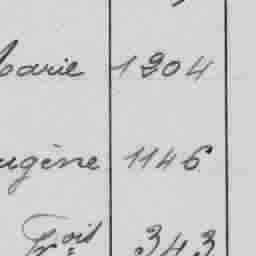 Marie 1904
Eugène 1146
Fçois 343